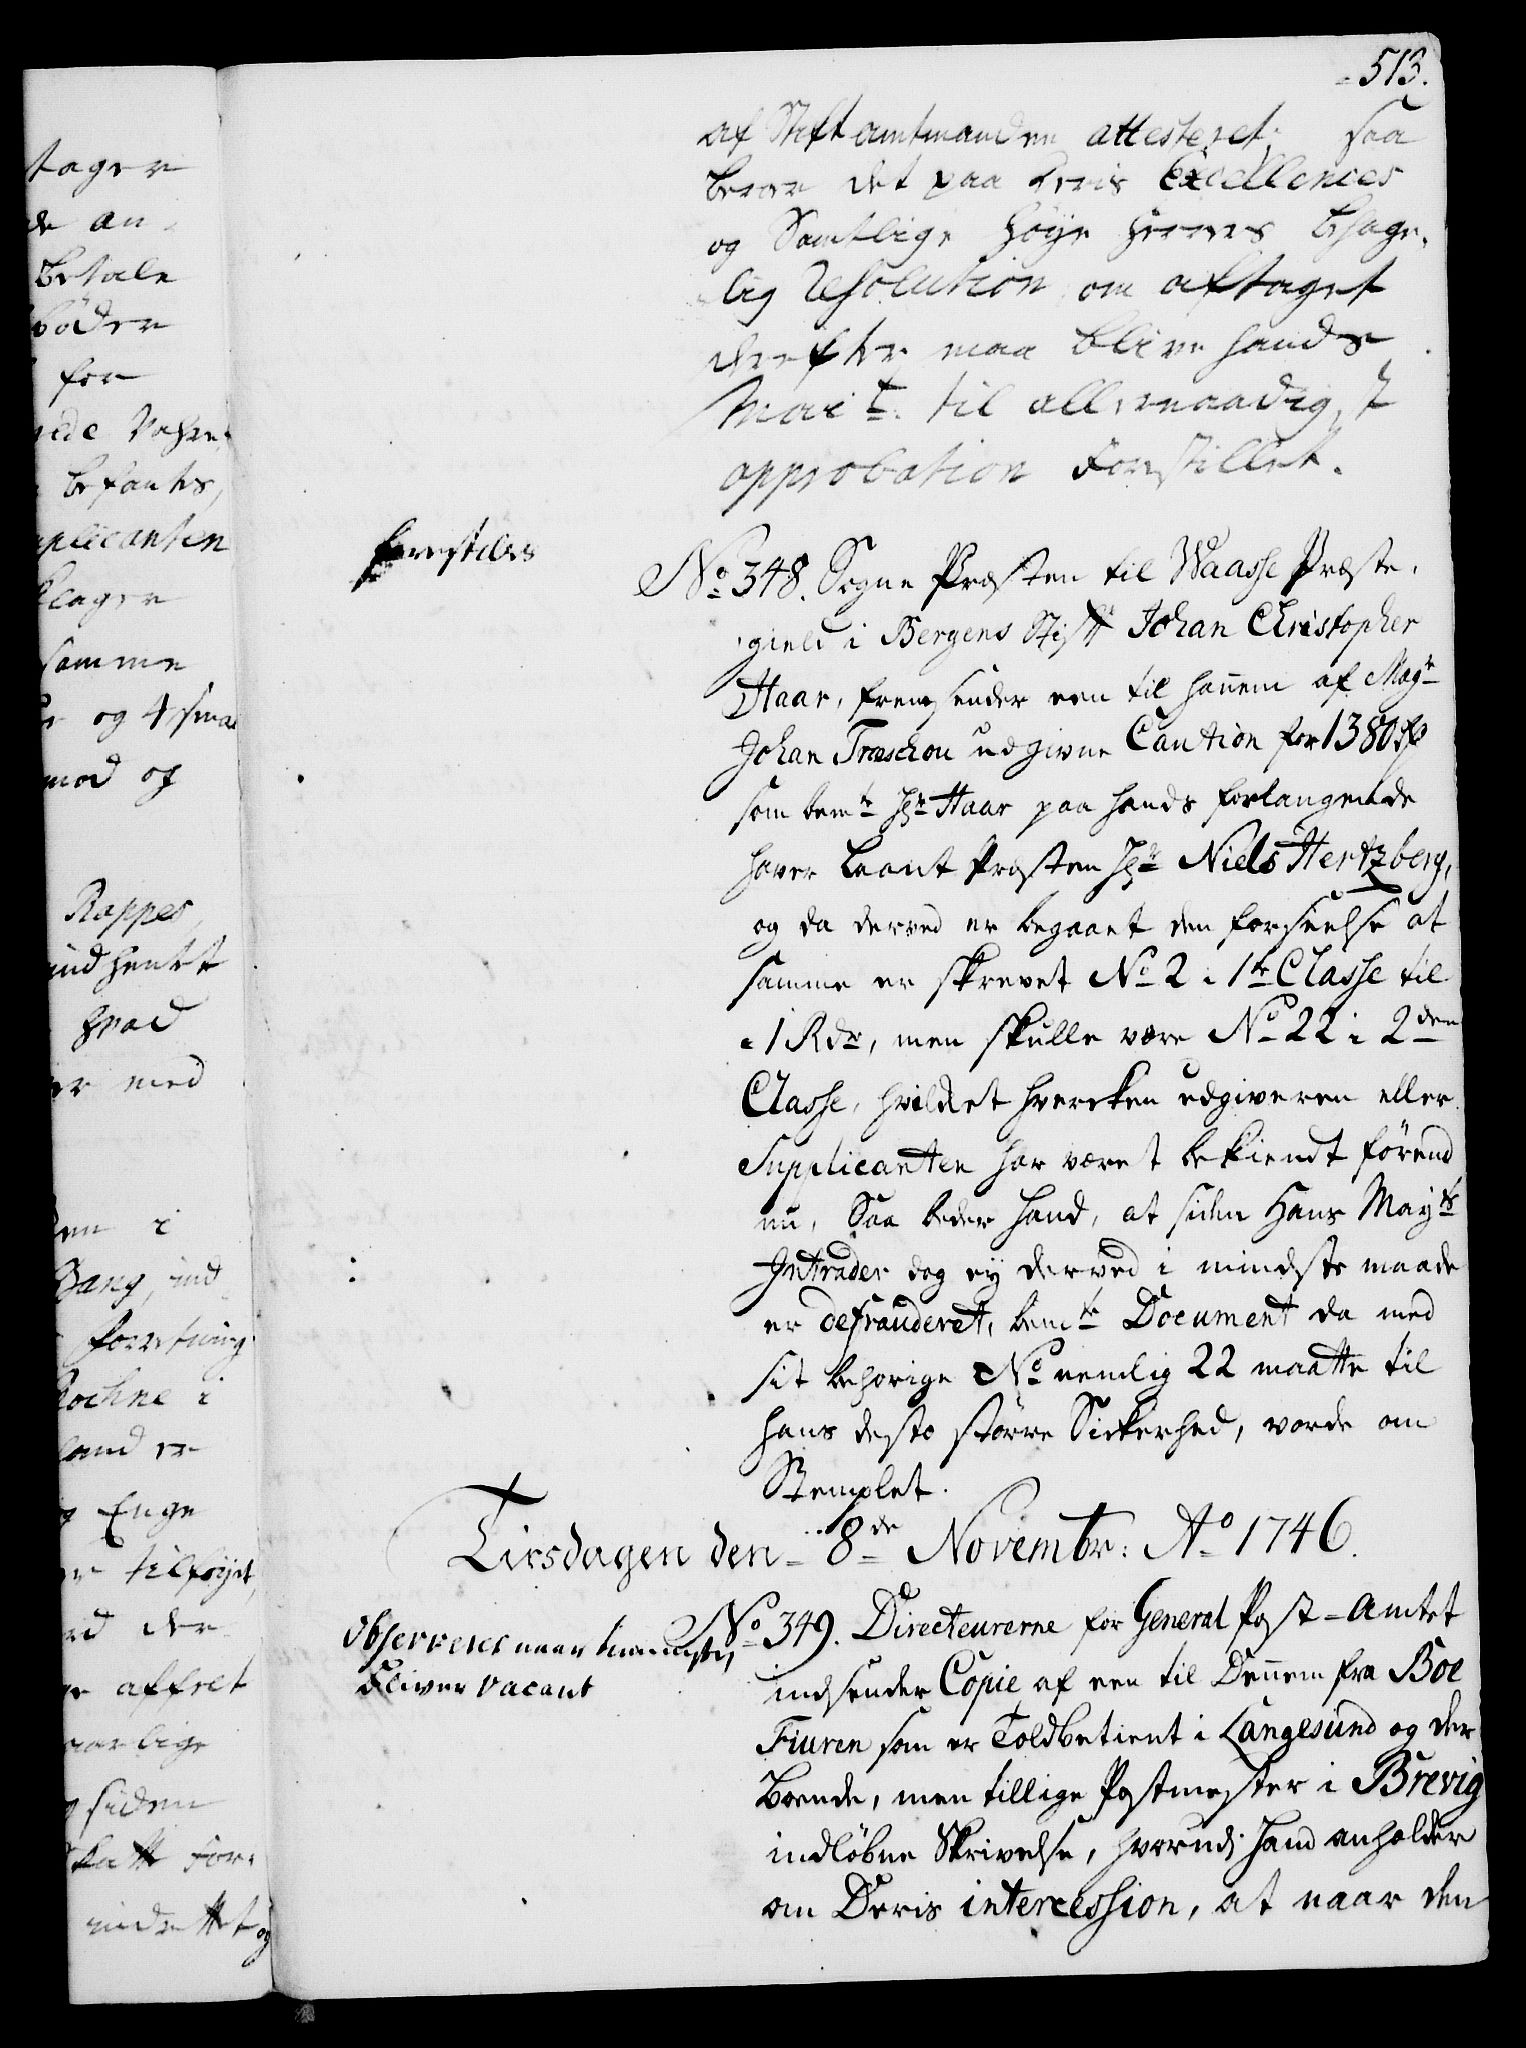 513.
af Stiftamtmanden attesteret; saa
beroer det paa deris Excellences
og Samtlige høye Herrers behage-
lig Resolution, om aftaget
derefter maa blive hands
Mait. til allernaadigst
approbation Forestillet.
forestilles
No 348. Sogne Præsten til Waasse Præste-
gield i Bergens Stift Johan Christopher
Haar, fremsender een til hannem af Magr
Johan Træschou udgivne Caution for 1380 rd
som bemte Hr Haar paa hands forlangende
haver laant Præsten Hr Niels Hertzberg,
og da derved er begaaet den forseelse at
samme er skrevet No 2 i 1te Classe til
1 Rdr, men skulle være No 22 i 2den
Classe, hvilcket hvercken udgiveren eller
Supplicanten har været bekiendt førend
nu, Saa beder hand, at siden Hans Mayts
Intrader dog ey derved i mindste maade
er defrauderet, bemte Document da med
sit behorige No nemlig 22 maatte til
hans desto større Sickerhed, vorde om
Stemplet.
Tirsdagen den 8de Novembr: Ao 1746.
observeres naar
bliver vacant
No 349. Directeurerne for General Post-Amtet
indsender Copie af een til Dennem fra Boe
Fiuren som er Toldbetient i Langesund og der
Boende, men tillige Postmester i Brevig
indløbne Skrivelse, hvorudj hand anholder
om Deris intercession, at naar den
tager
de an-
betale
bøder
for
Befantes,
plicanten
klager
samme
og 4 smaa
mod og
Rappes
indhentet
hvad
er med
den i
Bang, ind
forretning
Rochne i
land er
Enge
er tilføyet,
ed der
affret
aarlige
siden
Skatt for-
og